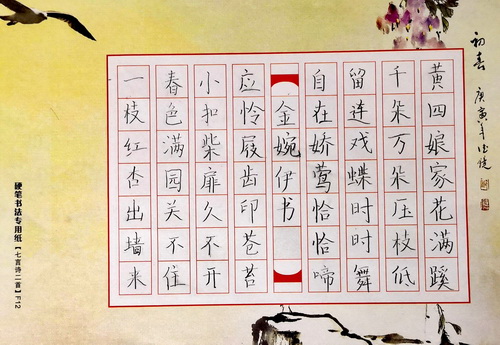 初春 庚寅年
黄四娘家花满蹊
千朵万朵压枝低
留连戏蝶时时舞
自在娇莺恰恰啼
金婉伊书
应怜屐齿印苍苔
小扣柴扉久不开
春色满园关不住
一枝红杏出墙来
硬笔书法专用纸【七言诗二首】F12